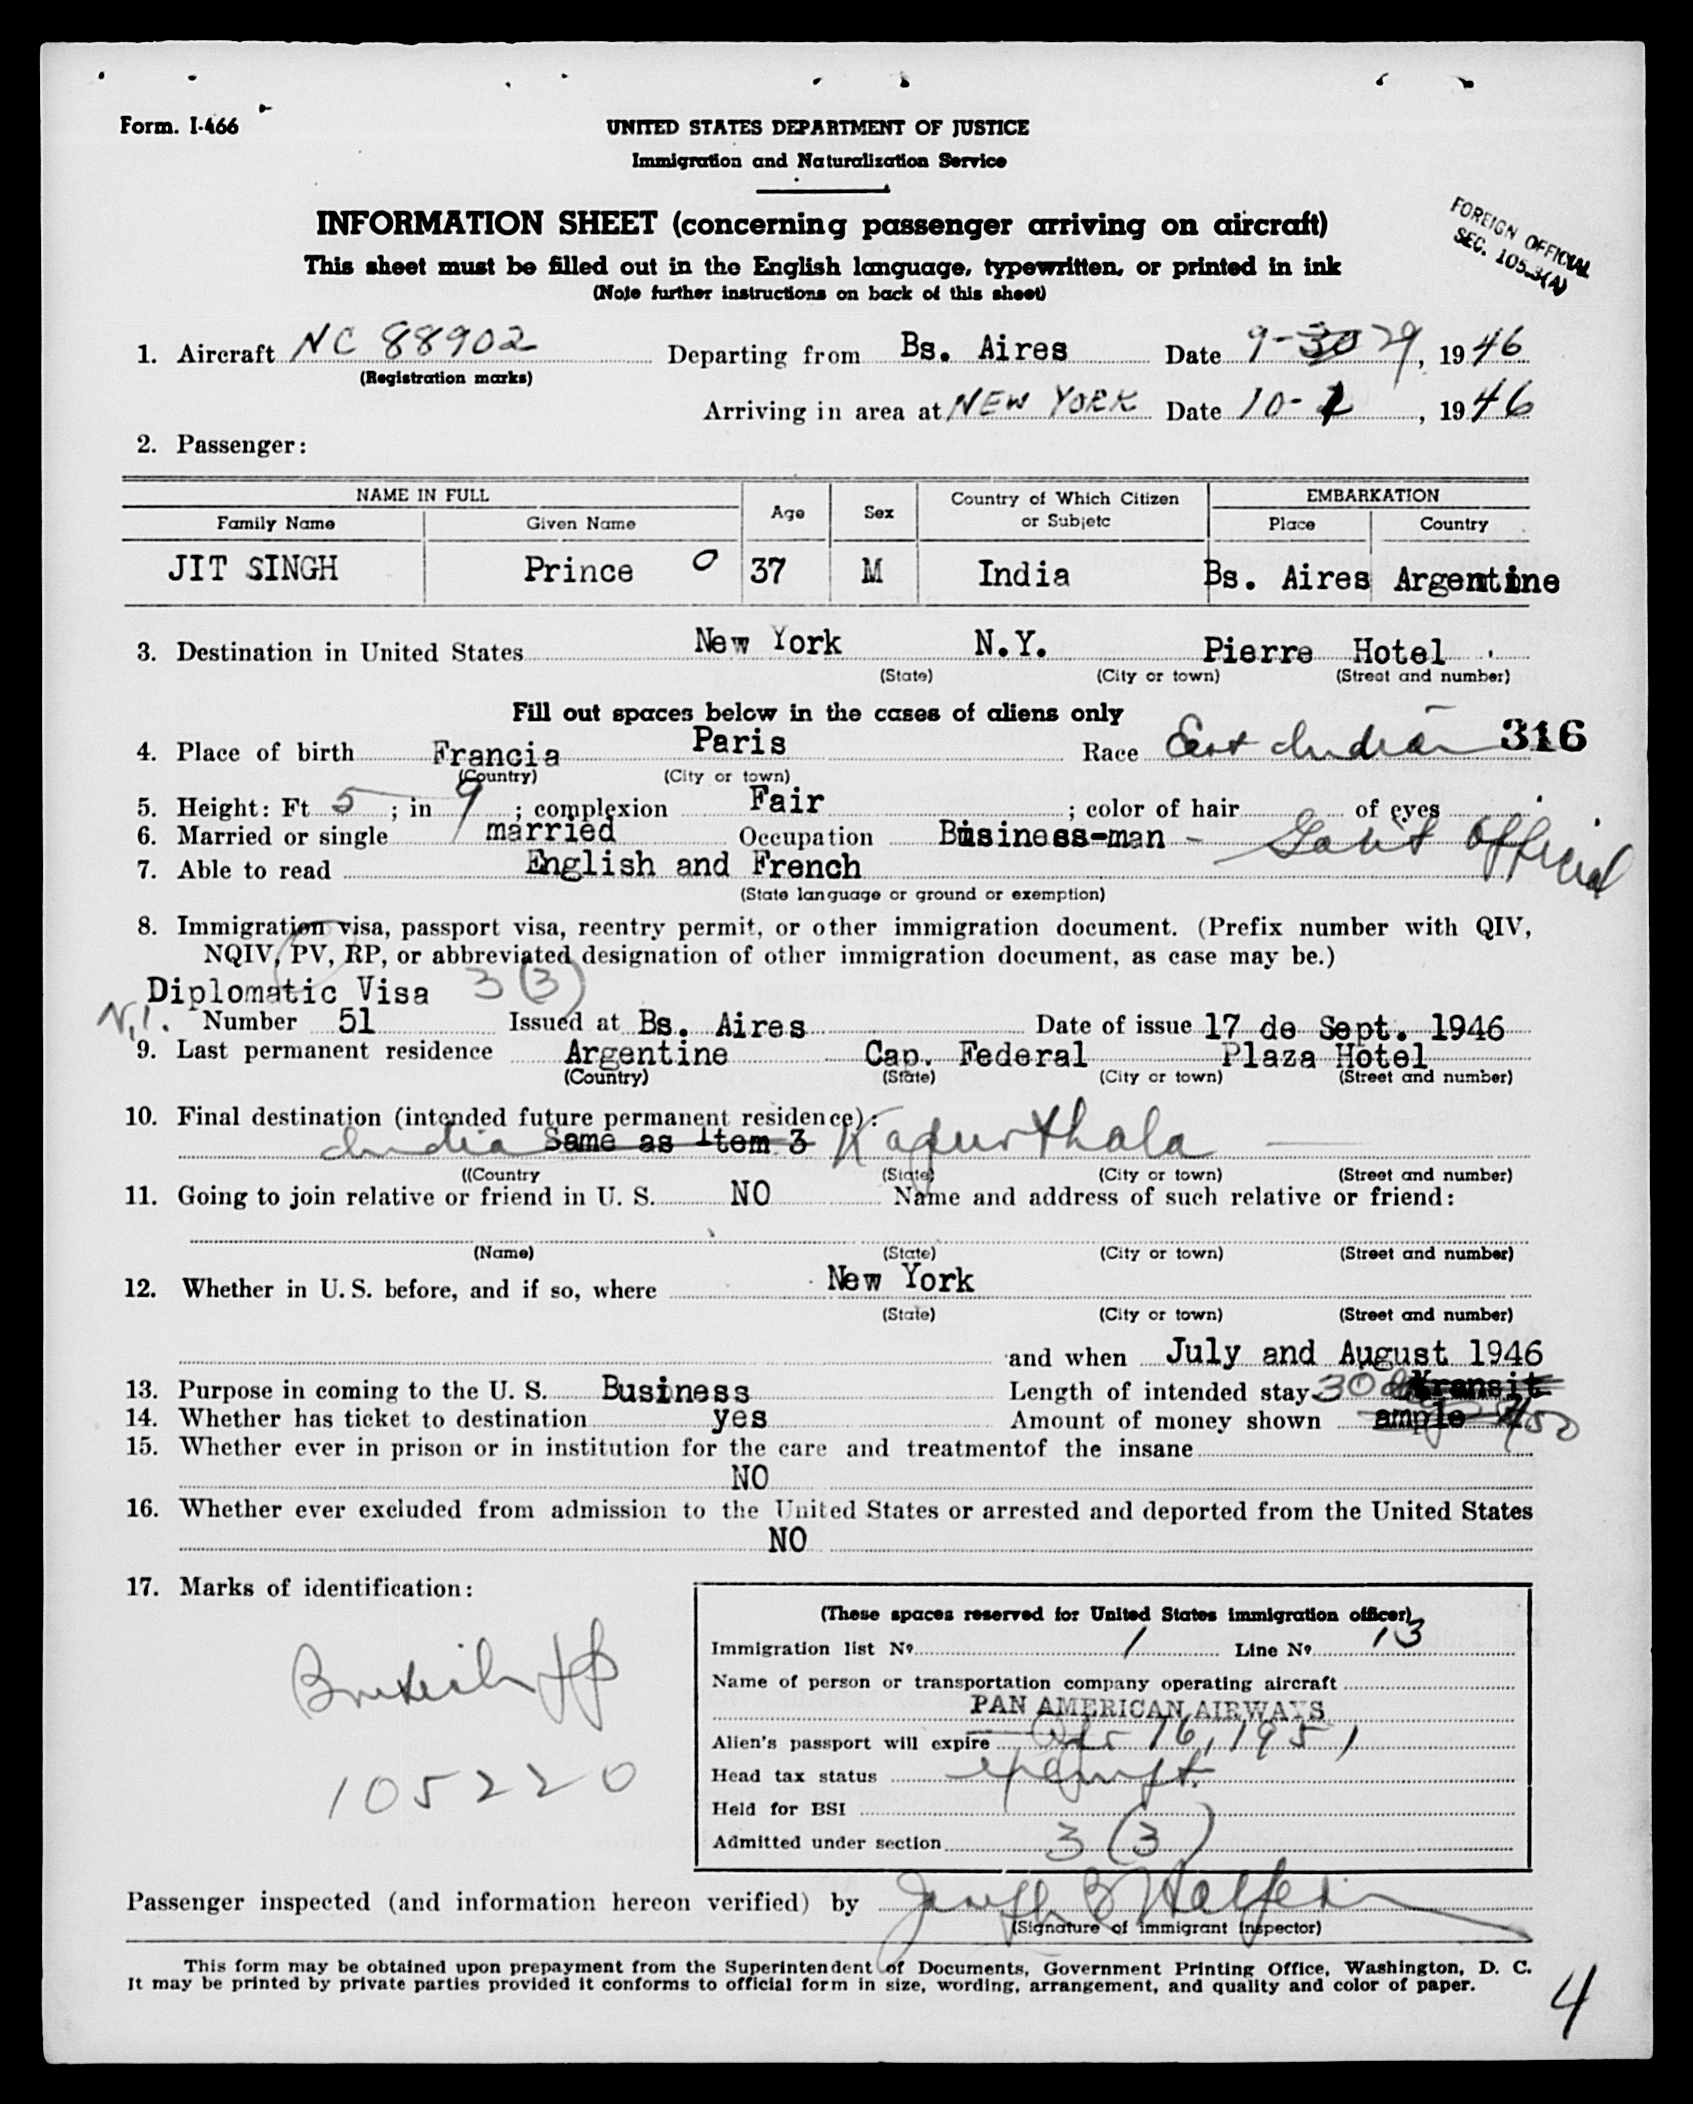 Form. I-466
UNITED STATES DEPARTMENT OF JUSTICE
Immigration and Naturalization Service
INFORMATION SHEET (concerning passenger arriving on aircraft)
FOREIGN OFFICIAL
SEC. 105.3(A)
This sheet must be filled out in the English language, typewritten, or printed in ink
(Note further instructions on back of this sheet)
1. Aircraft NC 88902 Departing from Bs. Aires Date 9-30 29, 1946
(Registration marks)
Arriving in area at NEW YORK Date 10-1, 1946
2. Passenger:
NAME IN FULL Age Sex Country of Which Citizen or Subjetc EMBARKATION
Family Name Given Name Place Country
JIT SINGH Prince O 37 M India Bs. Aires Argentine
3. Destination in United States New York N.Y. Pierre Hotel
(State) (City or town) (Street and number)
Fill out spaces below in the cases of aliens only
4. Place of birth Francia Paris Race East Indian 316
(Country) (City or town)
5. Height: Ft 5; in 9; complexion Fair; color of hair of eyes
6. Married or single married Occupation Business-man - Gov't Official
7. Able to read English and French
(State language or ground or exemption)
8. Immigration visa, passport visa, reentry permit, or other immigration document. (Prefix number with QIV,
NQIV, PV, RP, or abbreviated designation of other immigration document, as case may be.)
Diplomatic Visa 3 (3)
N.I. Number 51 Issued at Bs. Aires Date of issue 17 de Sept. 1946
9. Last permanent residence Argentine Cap. Federal Plaza Hotel
(Country) (State) (City or town) (Street and number)
10. Final destination (intended future permanent residence):
India Same as item 3 Kapurthala
((Country (State) (City or town) (Street and number)
11. Going to join relative or friend in U. S. NO Name and address of such relative or friend:
(Name) (State) (City or town) (Street and number)
12. Whether in U. S. before, and if so, where New York
(State) (City or town) (Street and number)
and when July and August 1946
13. Purpose in coming to the U. S. Business Length of intended stay 30 transit
14. Whether has ticket to destination yes Amount of money shown ample
15. Whether ever in prison or in institution for the care and treatmentof the insane
NO
16. Whether ever excluded from admission to the United States or arrested and deported from the United States
NO
17. Marks of identification:
British pp
105220
(These spaces reserved for United States immigration officer)
Immigration list Nº 1 Line Nº 13
Name of person or transportation company operating aircraft
PAN AMERICAN AIRWAYS
Alien's passport will expire 16, 1951
Head tax status exempt.
Held for BSI
Admitted under section 3 (3)
Passenger inspected (and information hereon verified) by Joseph B Halferin
(Signature of immigrant inspector)
This form may be obtained upon prepayment from the Superintendent of Documents, Government Printing Office, Washington, D. C.
It may be printed by private parties provided it conforms to official form in size, wording, arrangement, and quality and color of paper.
4